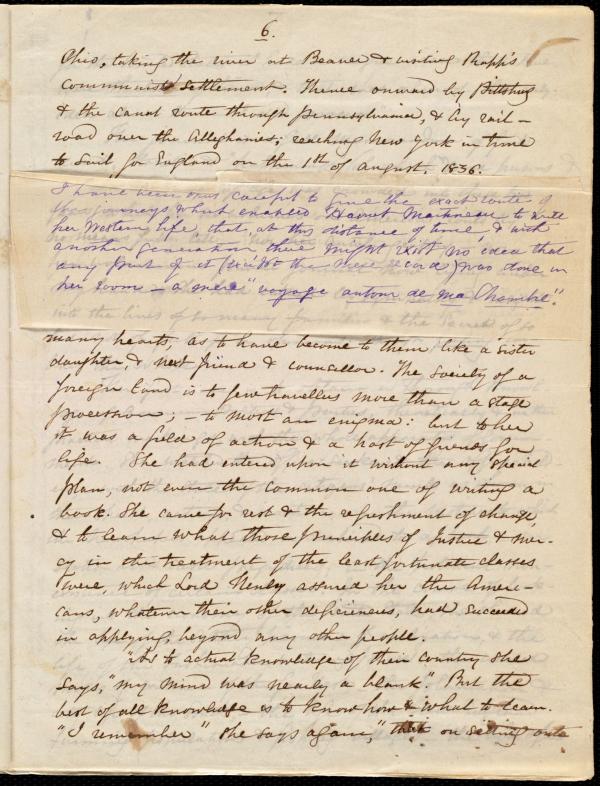 6.
Ohio, taking the river at Beaver & visiting Rapp's
Communist Settlement. Thence onward by Pittsburg
& the canal route through Pennsylvania, & by rail-
road over the Alleghanies; reaching New York in time
to sail for England on the 1st of August, 1836.
I have been thus careful to give the exact route of
the journeys which enabled Harriet Martineau to write
her Western life, that, at this distance of time, & with
another generation there might exist no idea that
any part of it (the record) was done in
her room – a mere "voyage autour de ma Chambre".
many hearts, as to have become to them like a sister
daughter, & next friend & counsellor. The Society of a
foreign land is to few travellers more than a stage
procession; – to most an enigma: but to her
it was a field of action & a host of friends for
life. She had entered upon it without any special
plan, not even the common one of writing a
book. She came for rest & the refreshment of change,
& to learn what those principles of Justice & Mer-
cy in the treatment of the least fortunate classes
were, which Lord Henly assured her the Ameri-
cans, whatever their other deficiencies, had succeeded
in applying, beyond any other people.
"As to actual knowledge of their country she
says, "my mind was nearly a blank". But the
best of all knowledge is to know how & what to learn.
"I remember" she says again, "that on setting out